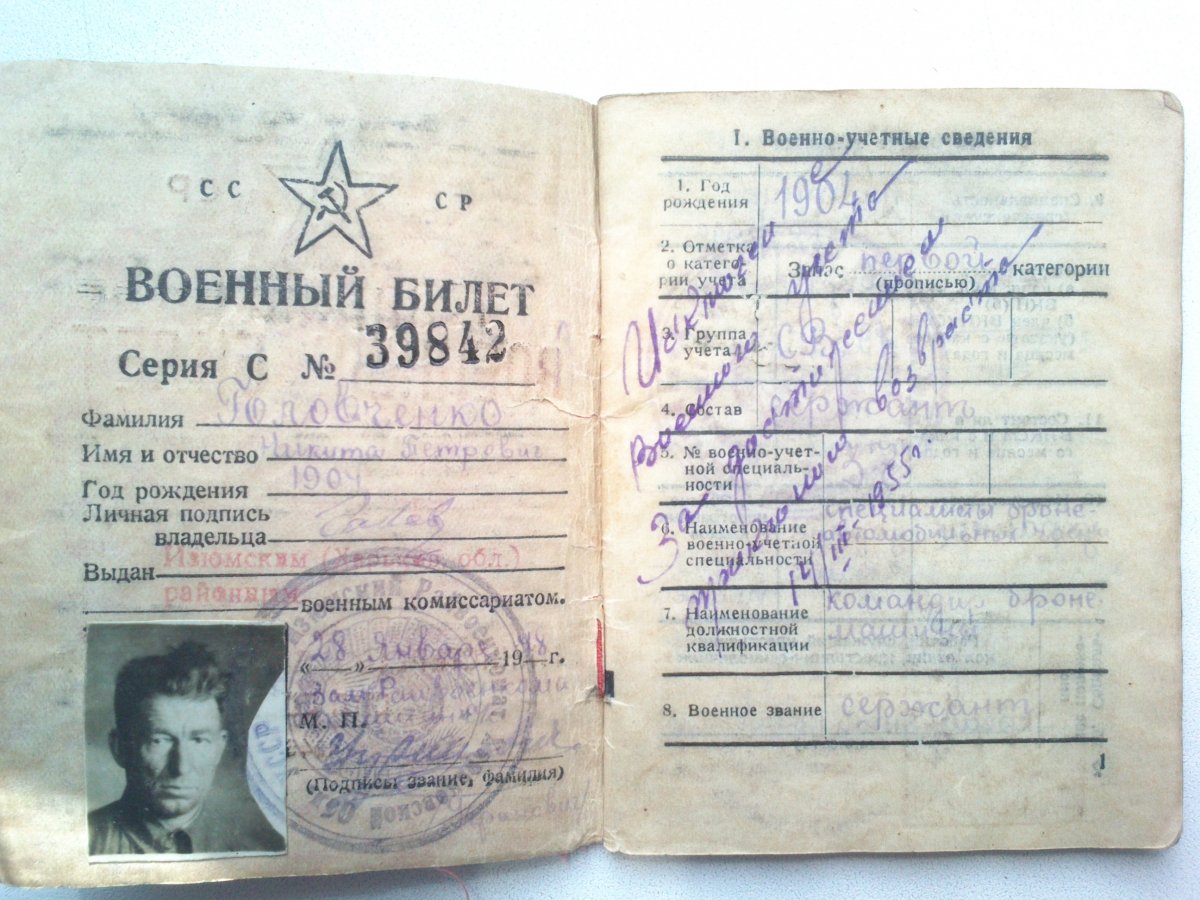 СС СР
ВОЕННЫЙ БИЛЕТ
Серия С № 39842
Фамилия Головченко
Имя и отчество Никита Петрович
Год рождения 1904
Личная подпись
владельца
Изюмским (Харьков. обл.)
Выдан районным
военным комиссариатом.
„28“ Января 1948 г.
М. П.
(Подпись, звание, фамилия)
I. Военно-учетные сведения
1. Год
рождения 1904
2. Отметка
о катего-
рии учета
Запас первой категории
(прописью)
3. Группа
учета
4. Состав сержант
5. № военно-учет-
ной специаль-
ности
6. Наименование
военно-учетной
специальности
специалисты броне
автомобильных
7. Наименование
должностной
квалификации
командир броне
машины
8. Военное звание сержант
1
Исключен с
военного учета
За достижением
предельного возраста
14/III 1955г.